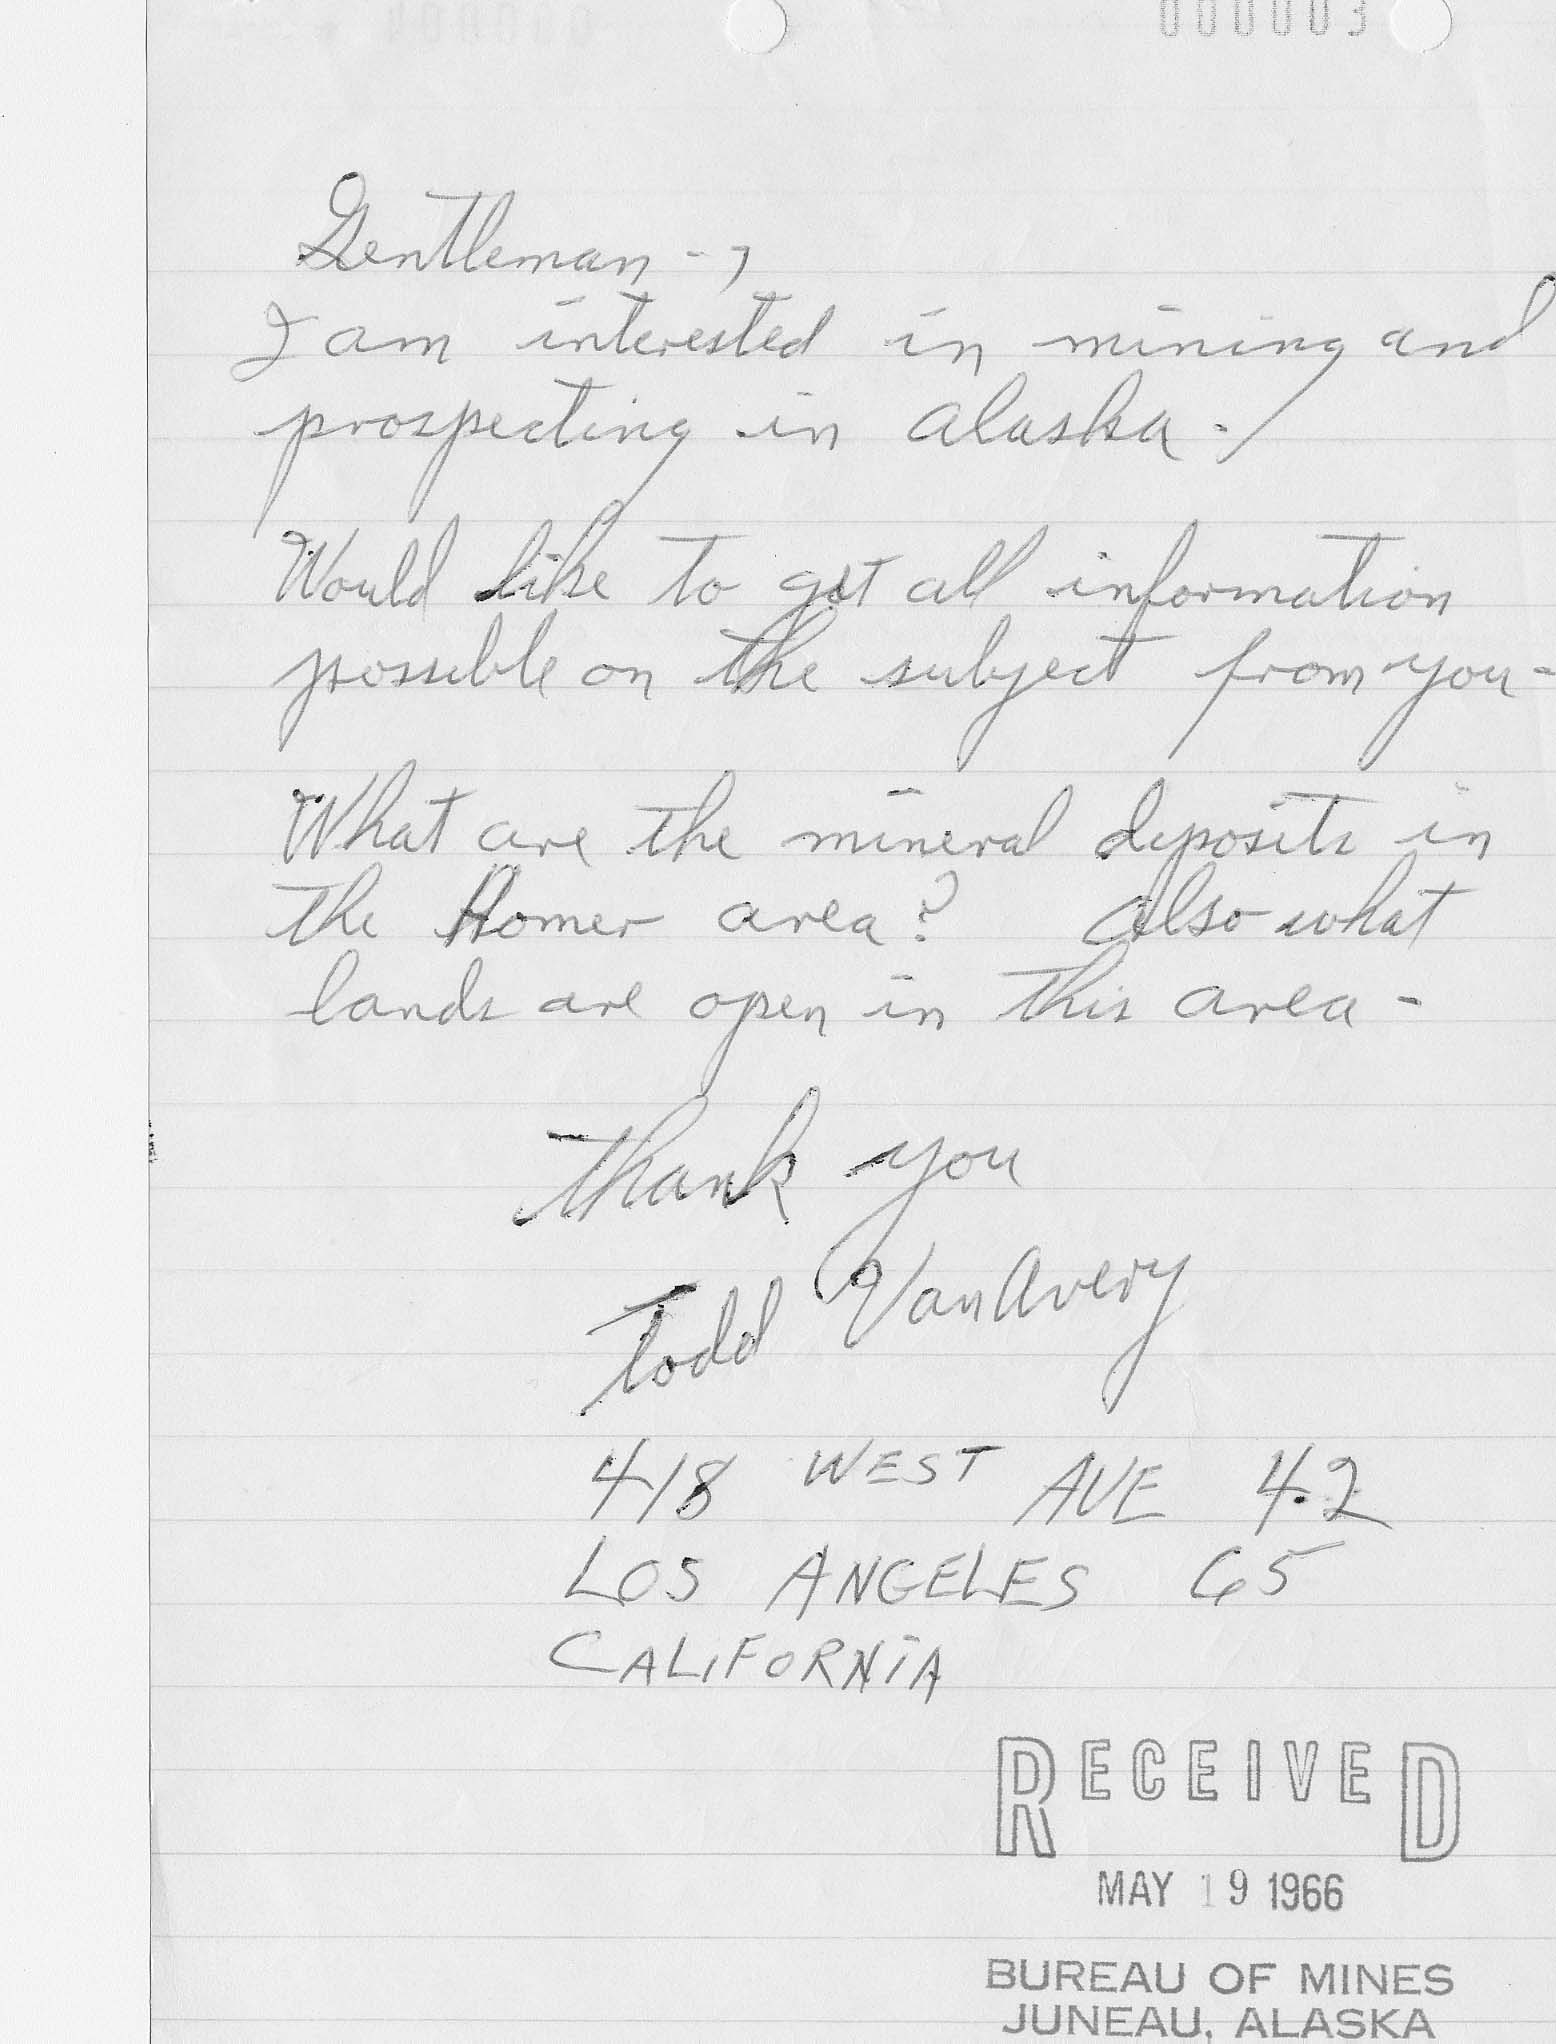 000003
Gentleman - ,
I am interested in mining and
prospecting in Alaska.
Would like to get all information
possible on the subject from you -
What are the mineral deposits in
the Homer area? Also what
lands are open in this area -
Thank you
Todd VanAvery
418 WEST AVE 42
LOS ANGELES 65
CALIFORNIA
RECEIVED
MAY 19 1966
BUREAU OF MINES
JUNEAU, ALASKA